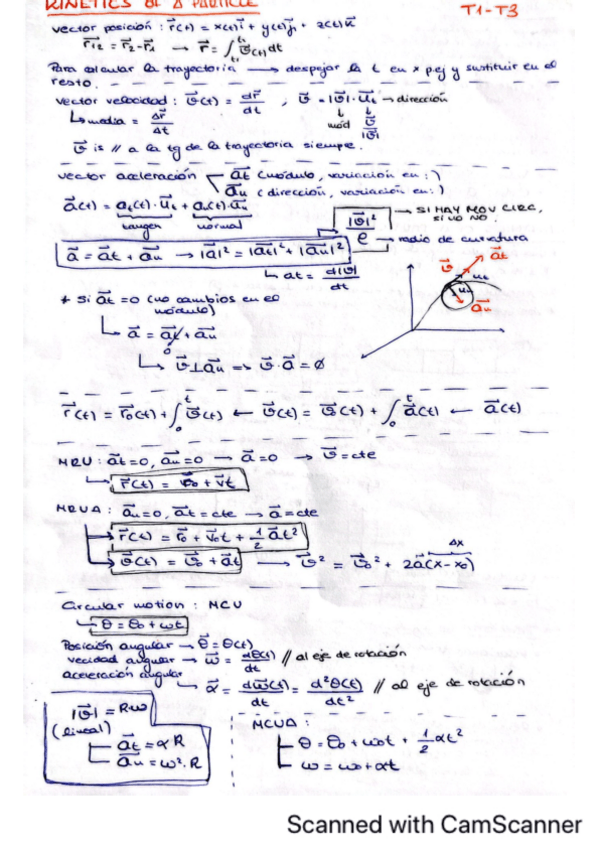 KINETICS OF A PARTICLE T1-T3
vector posición : r⃗(t) = x(t)i⃗ + y(t)j⃗ + z(t)k⃗
r⃗₁₂ = r⃗₂ - r⃗₁ → r⃗ = ∫ v⃗(t)dt
Para calcular la trayectoria → despejar la t en x pej y sustituir en el
resto.
vector velocidad : v⃗(t) = dr⃗/dt , v⃗ = |v⃗| · u⃗t → dirección
↳ media = Δr⃗/Δt mod v⃗/|v⃗|
v⃗ is // a la tg de la trayectoria siempre.
vector aceleración a⃗t (módulo, variación en :)
a⃗n (dirección, variación en :)
a⃗(t) = at(t) · u⃗t + an(t) · u⃗n
tangen normal |v⃗|²/ρ → SI HAY MOV CIRC, SI NO NO.
→ radio de curvatura
a⃗ = a⃗t + a⃗n → |a|² = |a⃗t|² + |a⃗n|²
↳ at = d|v⃗|/dt
v⃗ a⃗t ut un a⃗n
+ Si a⃗t = 0 (no cambios en el
módulo)
↳ a⃗ = a⃗t + a⃗n
0
↳ v⃗ ⊥ a⃗n => v⃗ · a⃗ = 0
r⃗(t) = r⃗₀(t) + ∫₀ᵗ v⃗(t) ← v⃗(t) = v⃗₀(t) + ∫₀ᵗ a⃗(t) ← a⃗(t)
MRU : a⃗t = 0, a⃗n = 0 → a⃗ = 0 → v⃗ = cte
r⃗(t) = r⃗₀ + v⃗t
MRUA : a⃗n = 0, a⃗t = cte → a⃗ = cte
r⃗(t) = r⃗₀ + v⃗₀t + 1/2 a⃗t²
Δx
v⃗(t) = v⃗₀ + a⃗t → v⃗² = v⃗₀² + 2a⃗(x - x₀)
Circular motion : MCU
θ = θ₀ + ωt
Posición angular → θ⃗ = θ(t)
vecidad angular → ω⃗ = dθ(t)/dt // al eje de rotación
aceleración angular
→ α⃗ = dω⃗(t)/dt = d²θ(t)/dt² // al eje de rotación
|v⃗| = Rω
(lineal)
a⃗t = α · R
a⃗n = ω² · R
MCUA :
θ = θ₀ + ω₀t + 1/2 αt²
ω = ω₀ + αt
Scanned with CamScanner